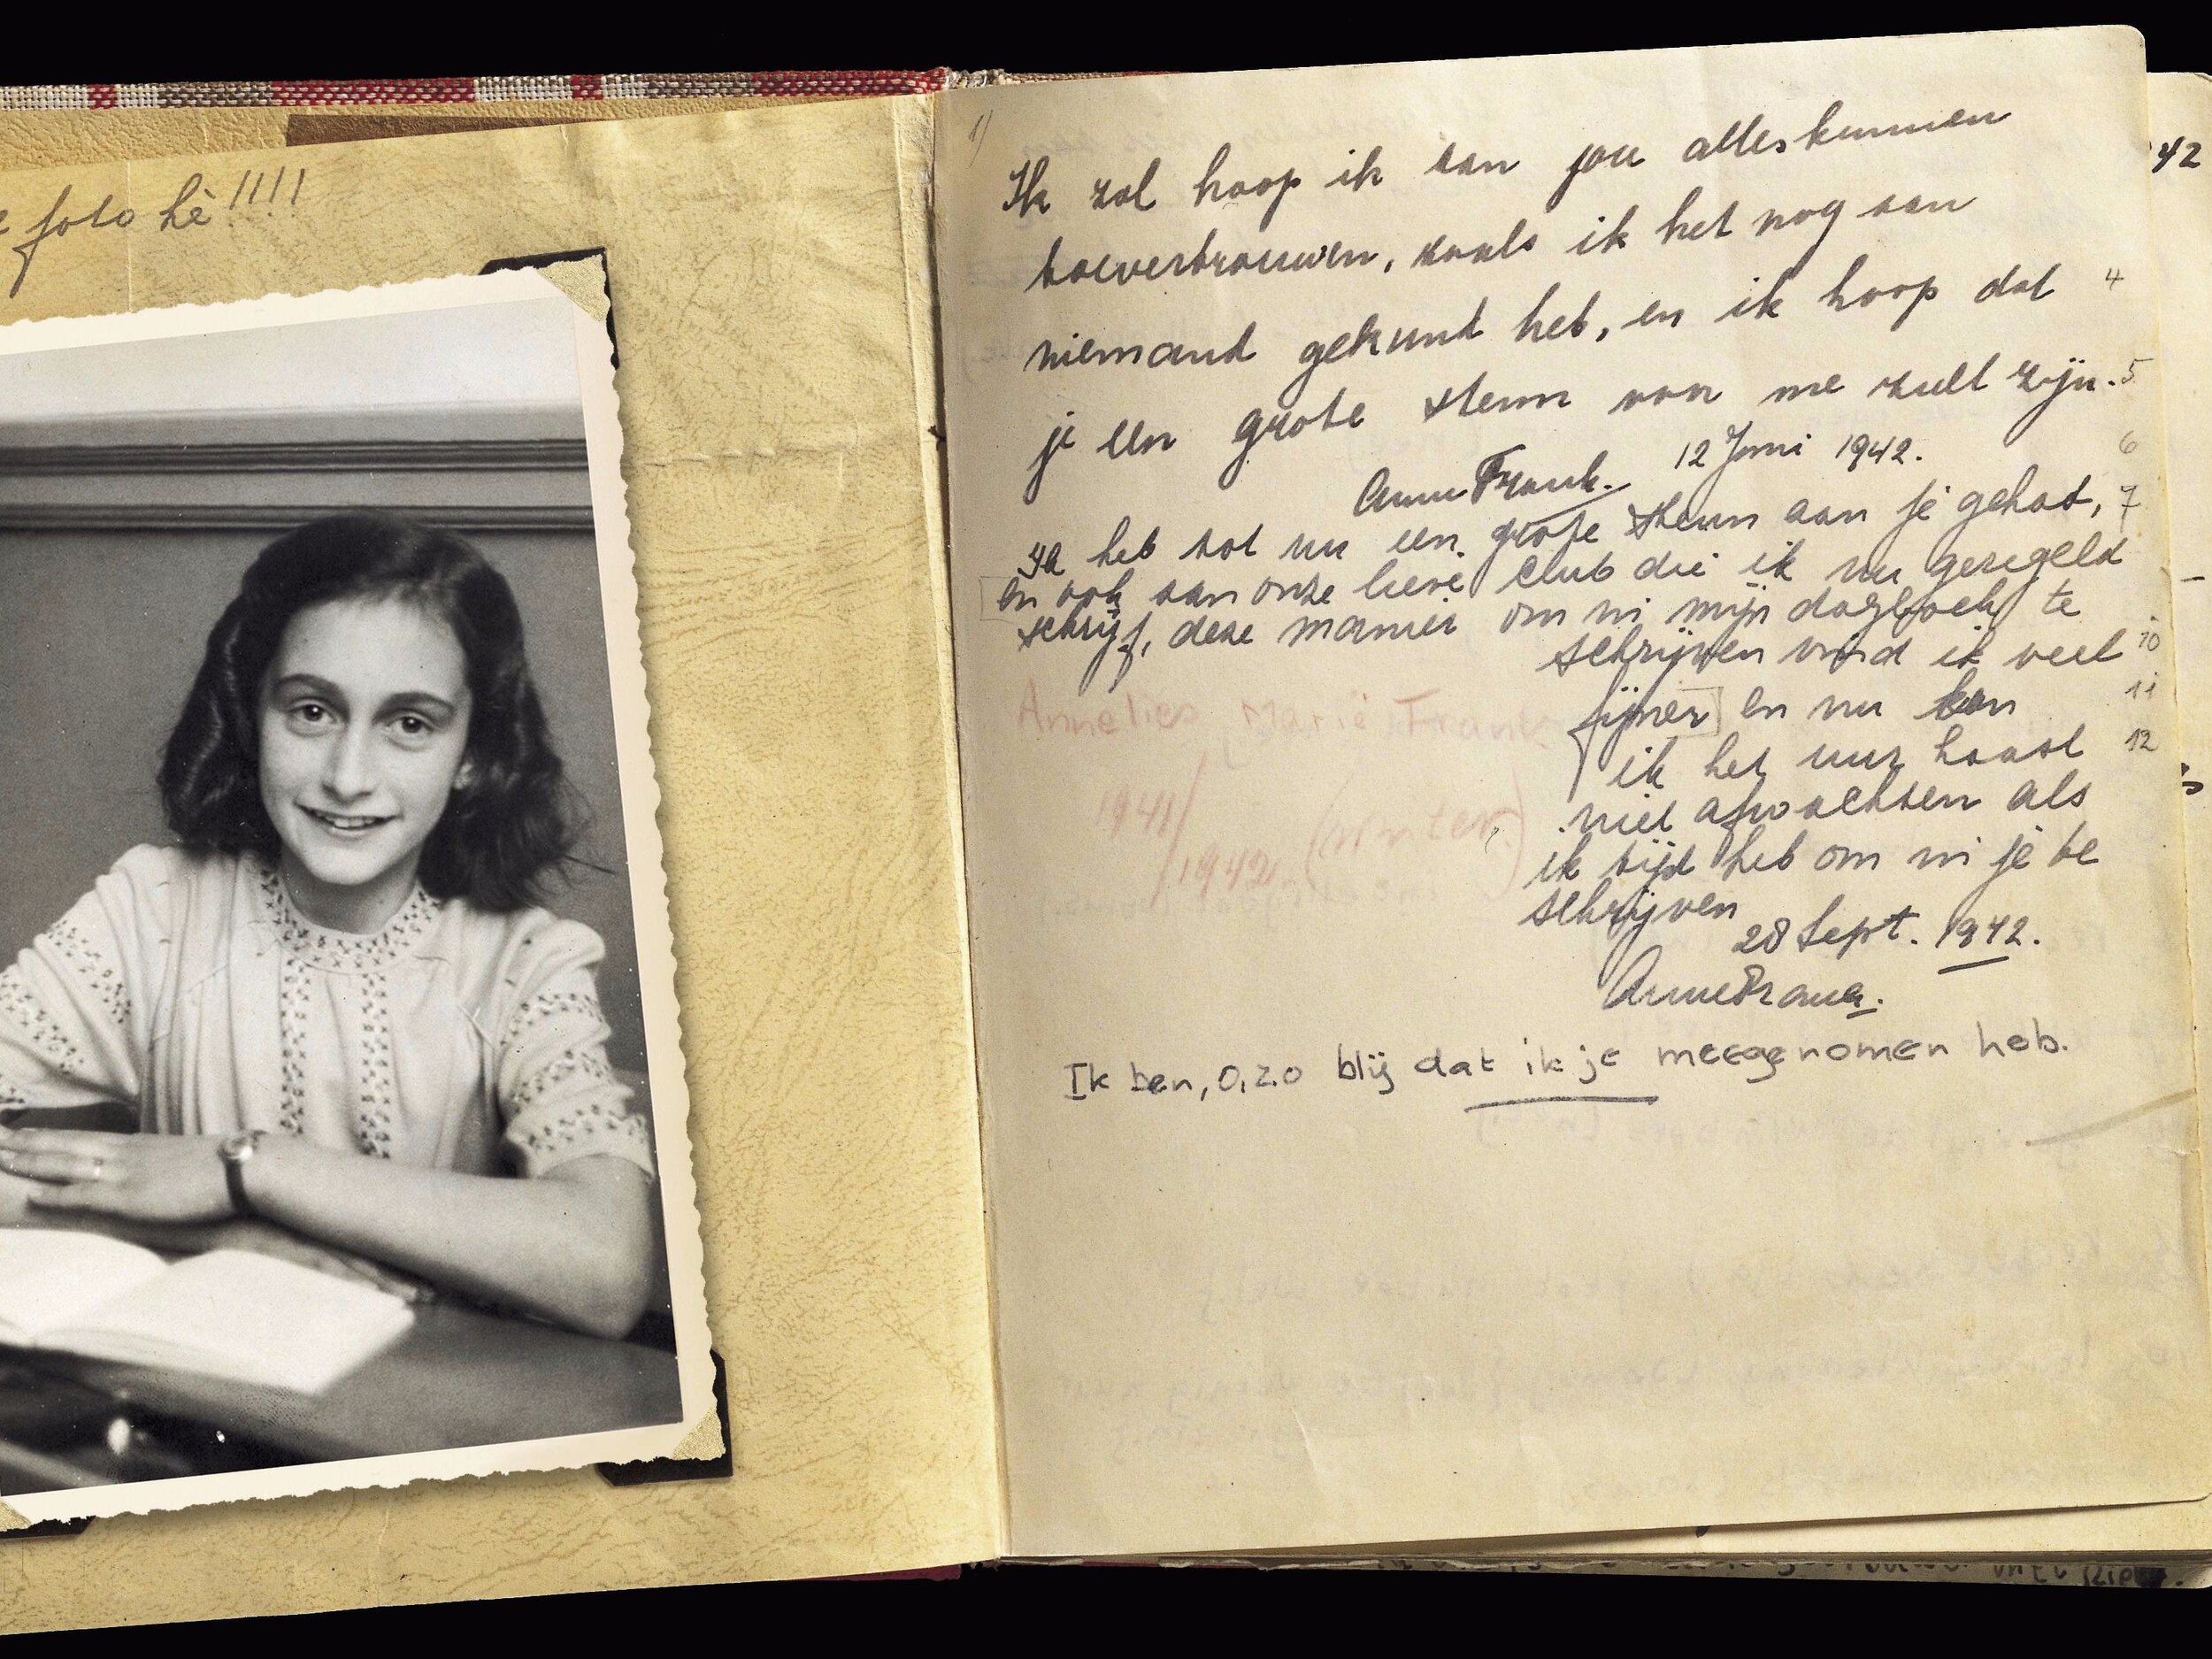 foto hè!!!!
Ik zal hoop ik aan jou alles kunnen
toevertrouwen, zoals ik het nog aan
niemand gekund heb, en ik hoop dat
je een grote steun voor me zult zijn.
Anne Frank. 12 Juni 1942.
Ik heb tot nu een grote steun aan je gehad,
en ook aan onze lieve club die ik nu geregeld
schrijf, deze manier om in mijn dagboek te
schrijven vind ik veel
fijner en nu kan
ik het uur haast
niet afwachten als
ik tijd heb om in je te
schrijven
28 Sept. 1942.
Anne Frank.
Annelies Marie Frank
1941/
1942 (winter)
Ik ben, O, zo blij dat ik je meegenomen heb.
42
4
5
6
7
10
11
12